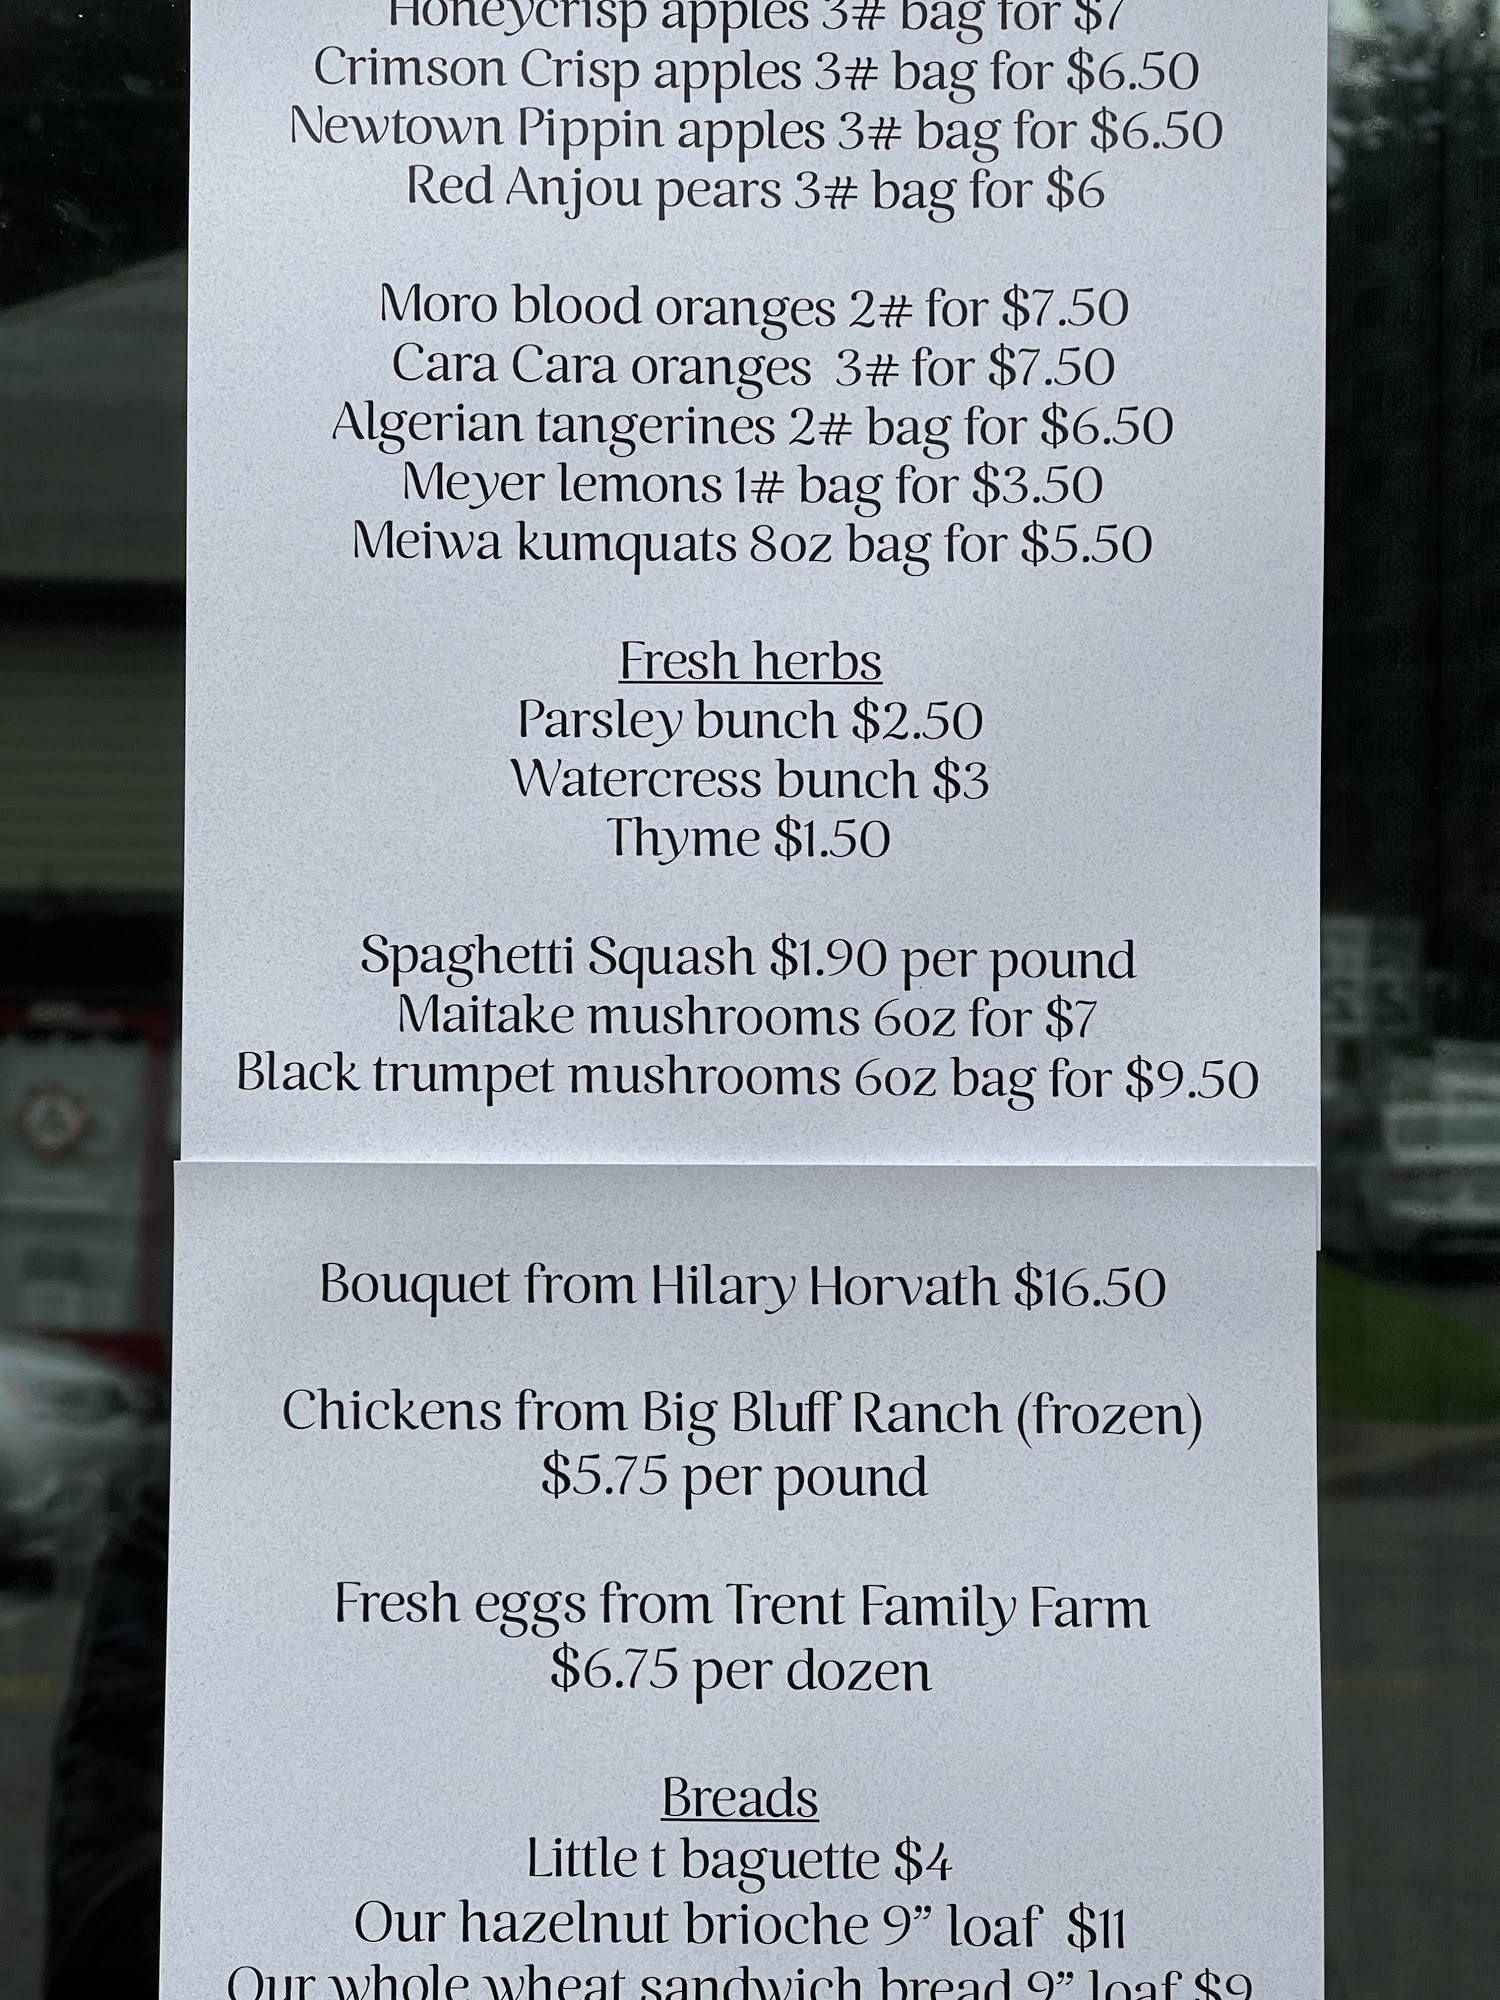 Honeycrisp apples 3# bag for $7
Crimson Crisp apples 3# bag for $6.50
Newtown Pippin apples 3# bag for $6.50
Red Anjou pears 3# bag for $6
Moro blood oranges 2# for $7.50
Cara Cara oranges 3# for $7.50
Algerian tangerines 2# bag for $6.50
Meyer lemons 1# bag for $3.50
Meiwa kumquats 8oz bag for $5.50
Fresh herbs
Parsley bunch $2.50
Watercress bunch $3
Thyme $1.50
Spaghetti Squash $1.90 per pound
Maitake mushrooms 6oz for $7
Black trumpet mushrooms 6oz bag for $9.50
Bouquet from Hilary Horvath $16.50
Chickens from Big Bluff Ranch (frozen)
$5.75 per pound
Fresh eggs from Trent Family Farm
$6.75 per dozen
Breads
Little t baguette $4
Our hazelnut brioche 9” loaf $11
Our whole wheat sandwich bread 9” loaf $9